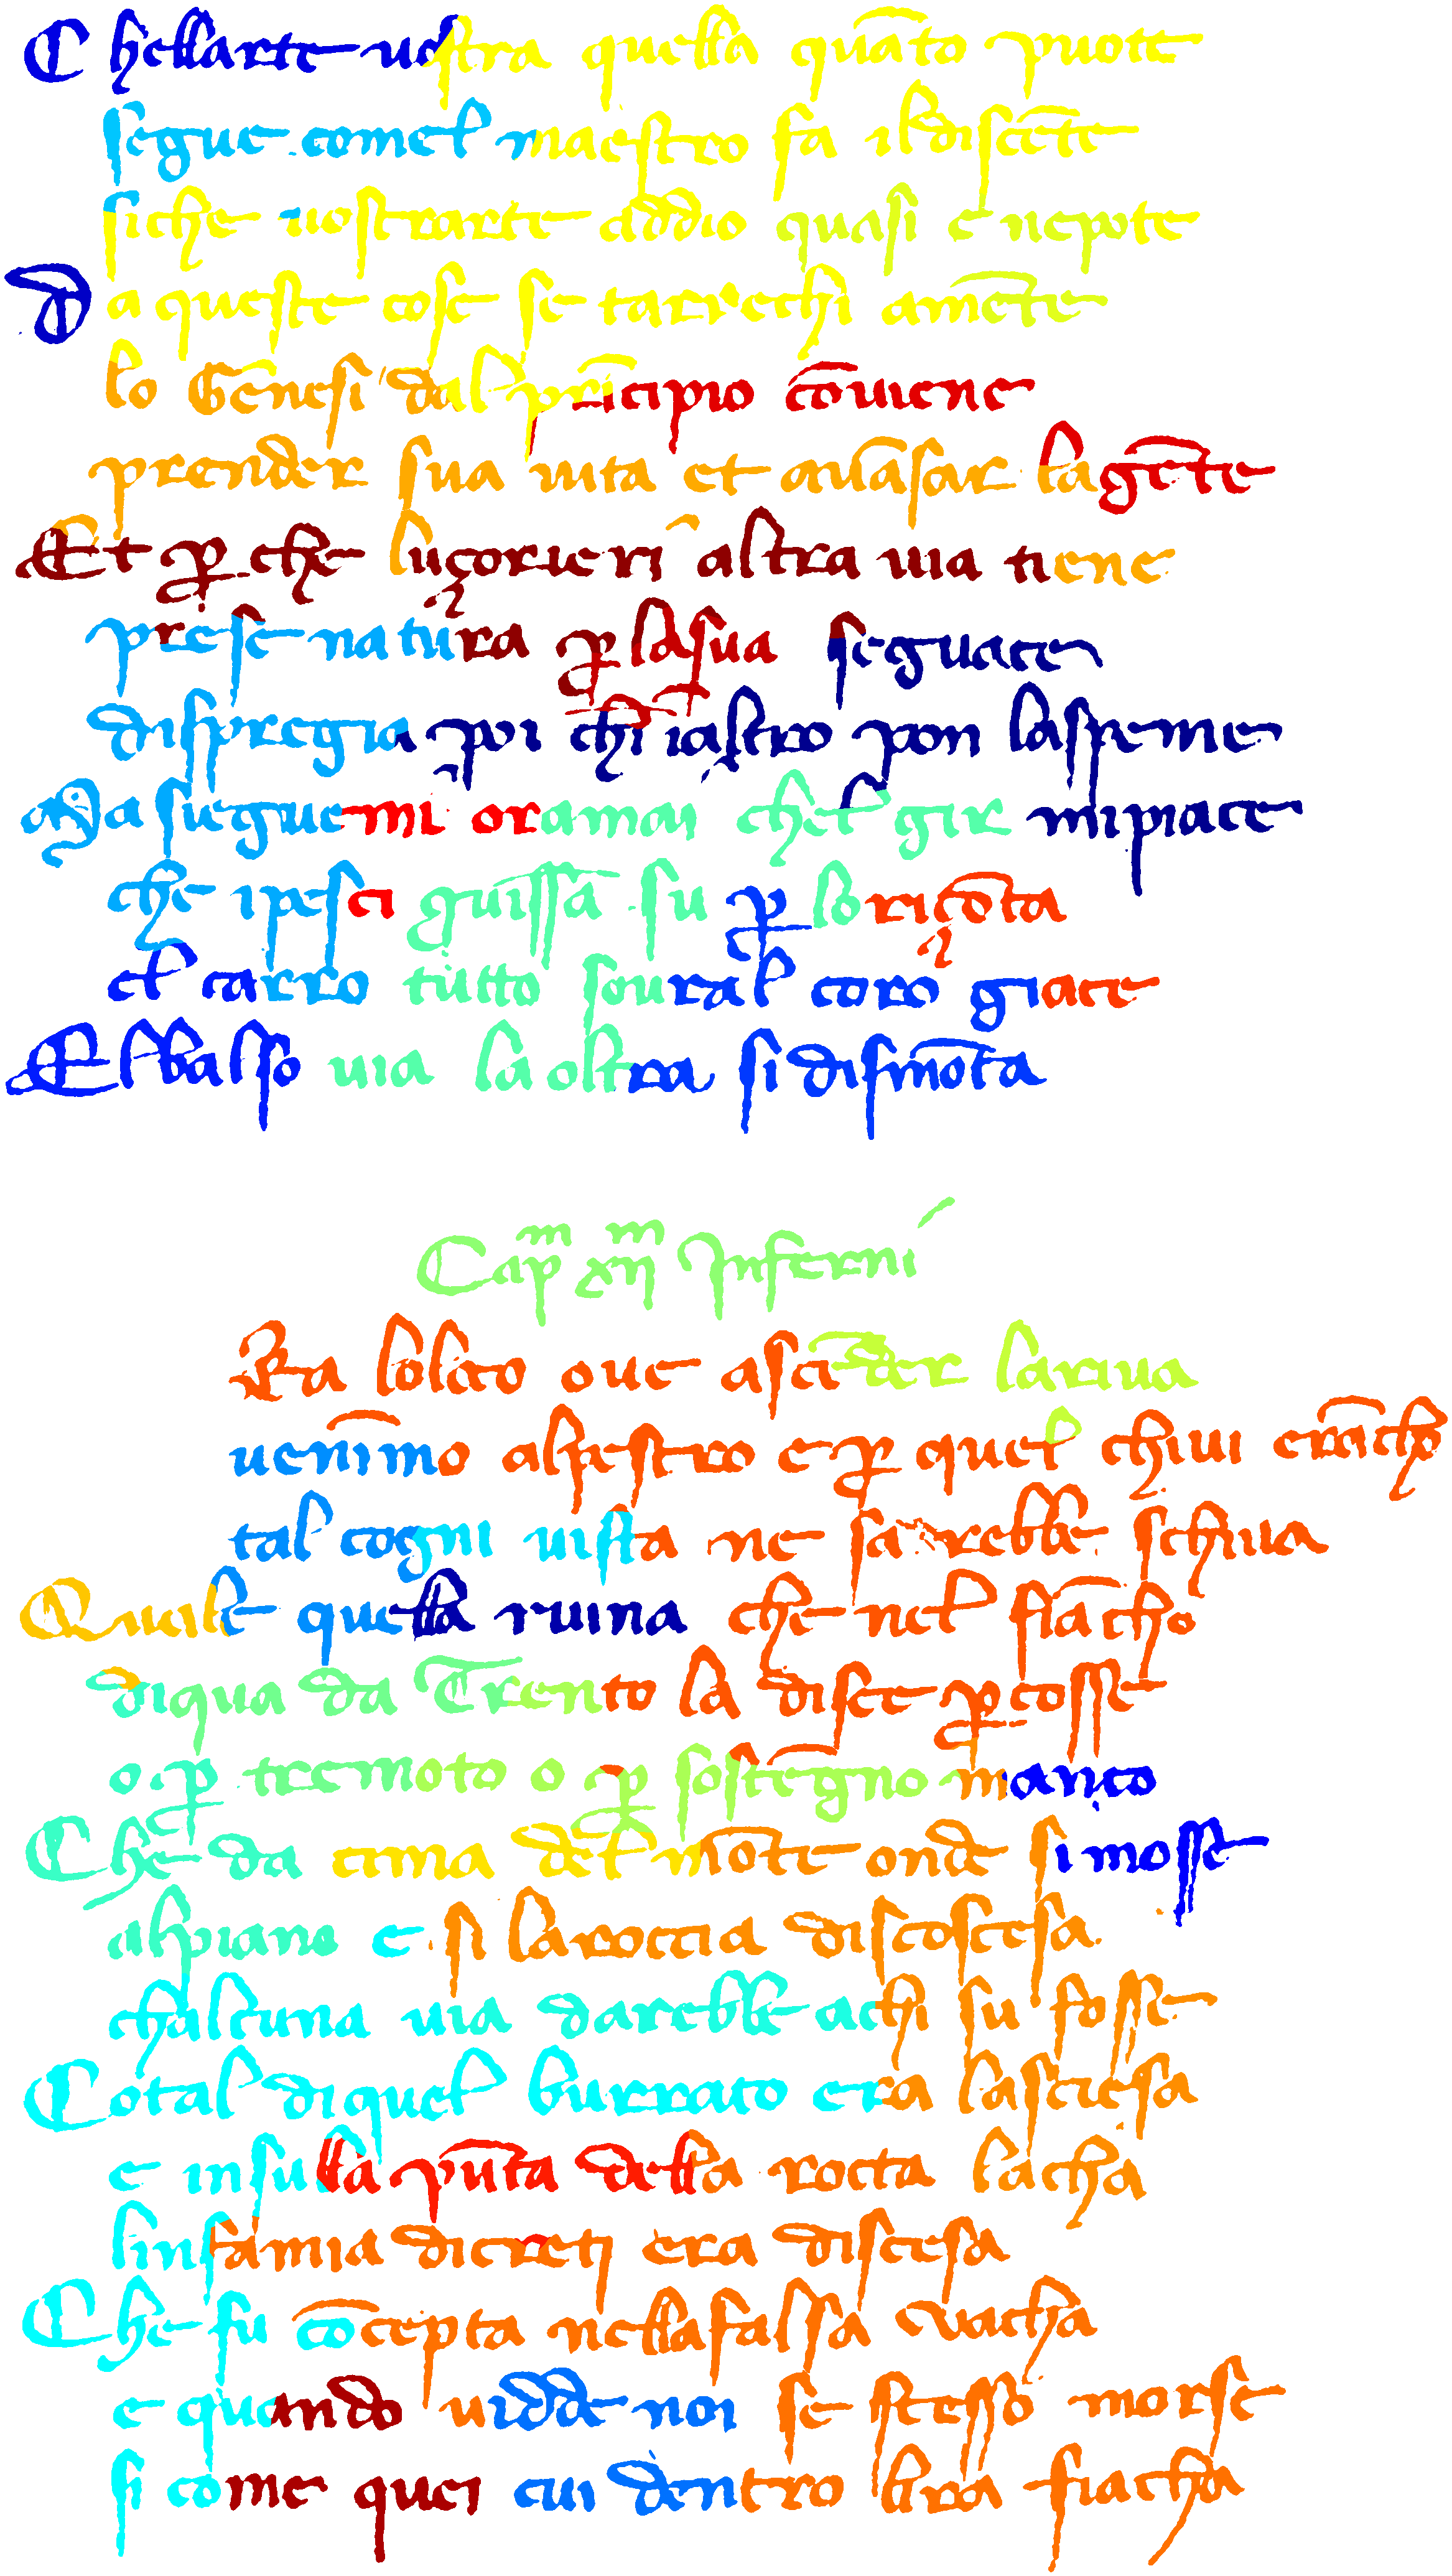 C hellarte uostra quella quāto puote
segue comel maestro fa ildiscēte
siche uostrarte addio quasi e nepote
D a queste cose se tarrechi amēte
lo Gēnesi dal prīcipio cōuiene
prender sua uita et auāsar lagēte
Et ꝑ che luçorieri altra uia tiene
prese natura ꝑ lasua seguace
dispregia poi chī iastro pon laspeme
Ma sieguemi oramai chel gir mipiace
che ipesci guissā su ꝑ loriçōta
el carro tutto soural coro giace
Elbalso uia la oltra si dismōta
Capm xijm Inferni
Era loloco oue ascēder lariua
uenīmo alpestro e ꝑ quel chiui erācho
tal cogni uista ne sarebbe schiua
Quale quella ruina che nel fiācho
diqua da Trento la disce ꝑcosse
o ꝑ tremoto o ꝑ sostēgno manco
Che da cima del mōte onde si mosse
alpiano e si laroccia discoscesa
chalcuna uia darebbe achi su fosse
Cotal diquel burrato era lasciesa
e insulla pūta della rocta lacha
linfamia dicreti era discesa
Che fu cōcepta nellafalsa vacha
e quando uidde noi se stesso morse
si come quei cui dentro lira fiacha